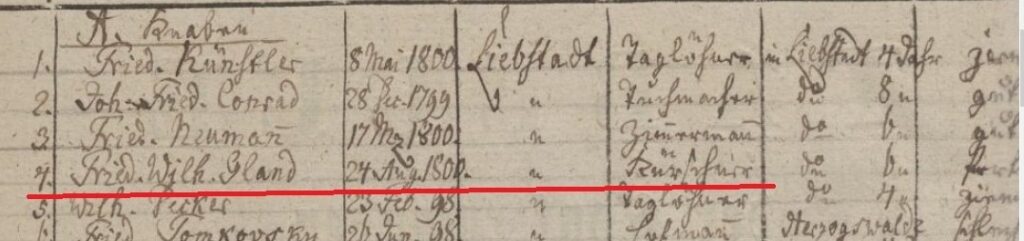 A. Knaben
1. Fried. Künstler 8 Mai 1800. Liebstadt Taglöhner in Liebstadt 4 Jahr
2. Joh. Fried. Conrad 28 Dec. 1799 " Tuchmacher do 8 " gut
3. Fried. Neumañ 17 Mz 1800. " Zim̃ermañ do 6 " gut
4. Fried. Wilh. Gland 24 Aug. 1800. " Kürschner do 6 "
5. Wilh. 23 Feb. 98 " Taglöhner do 4 "
6. Fried. Tomkovsky 26 Jun. 98 " Herzogswalde